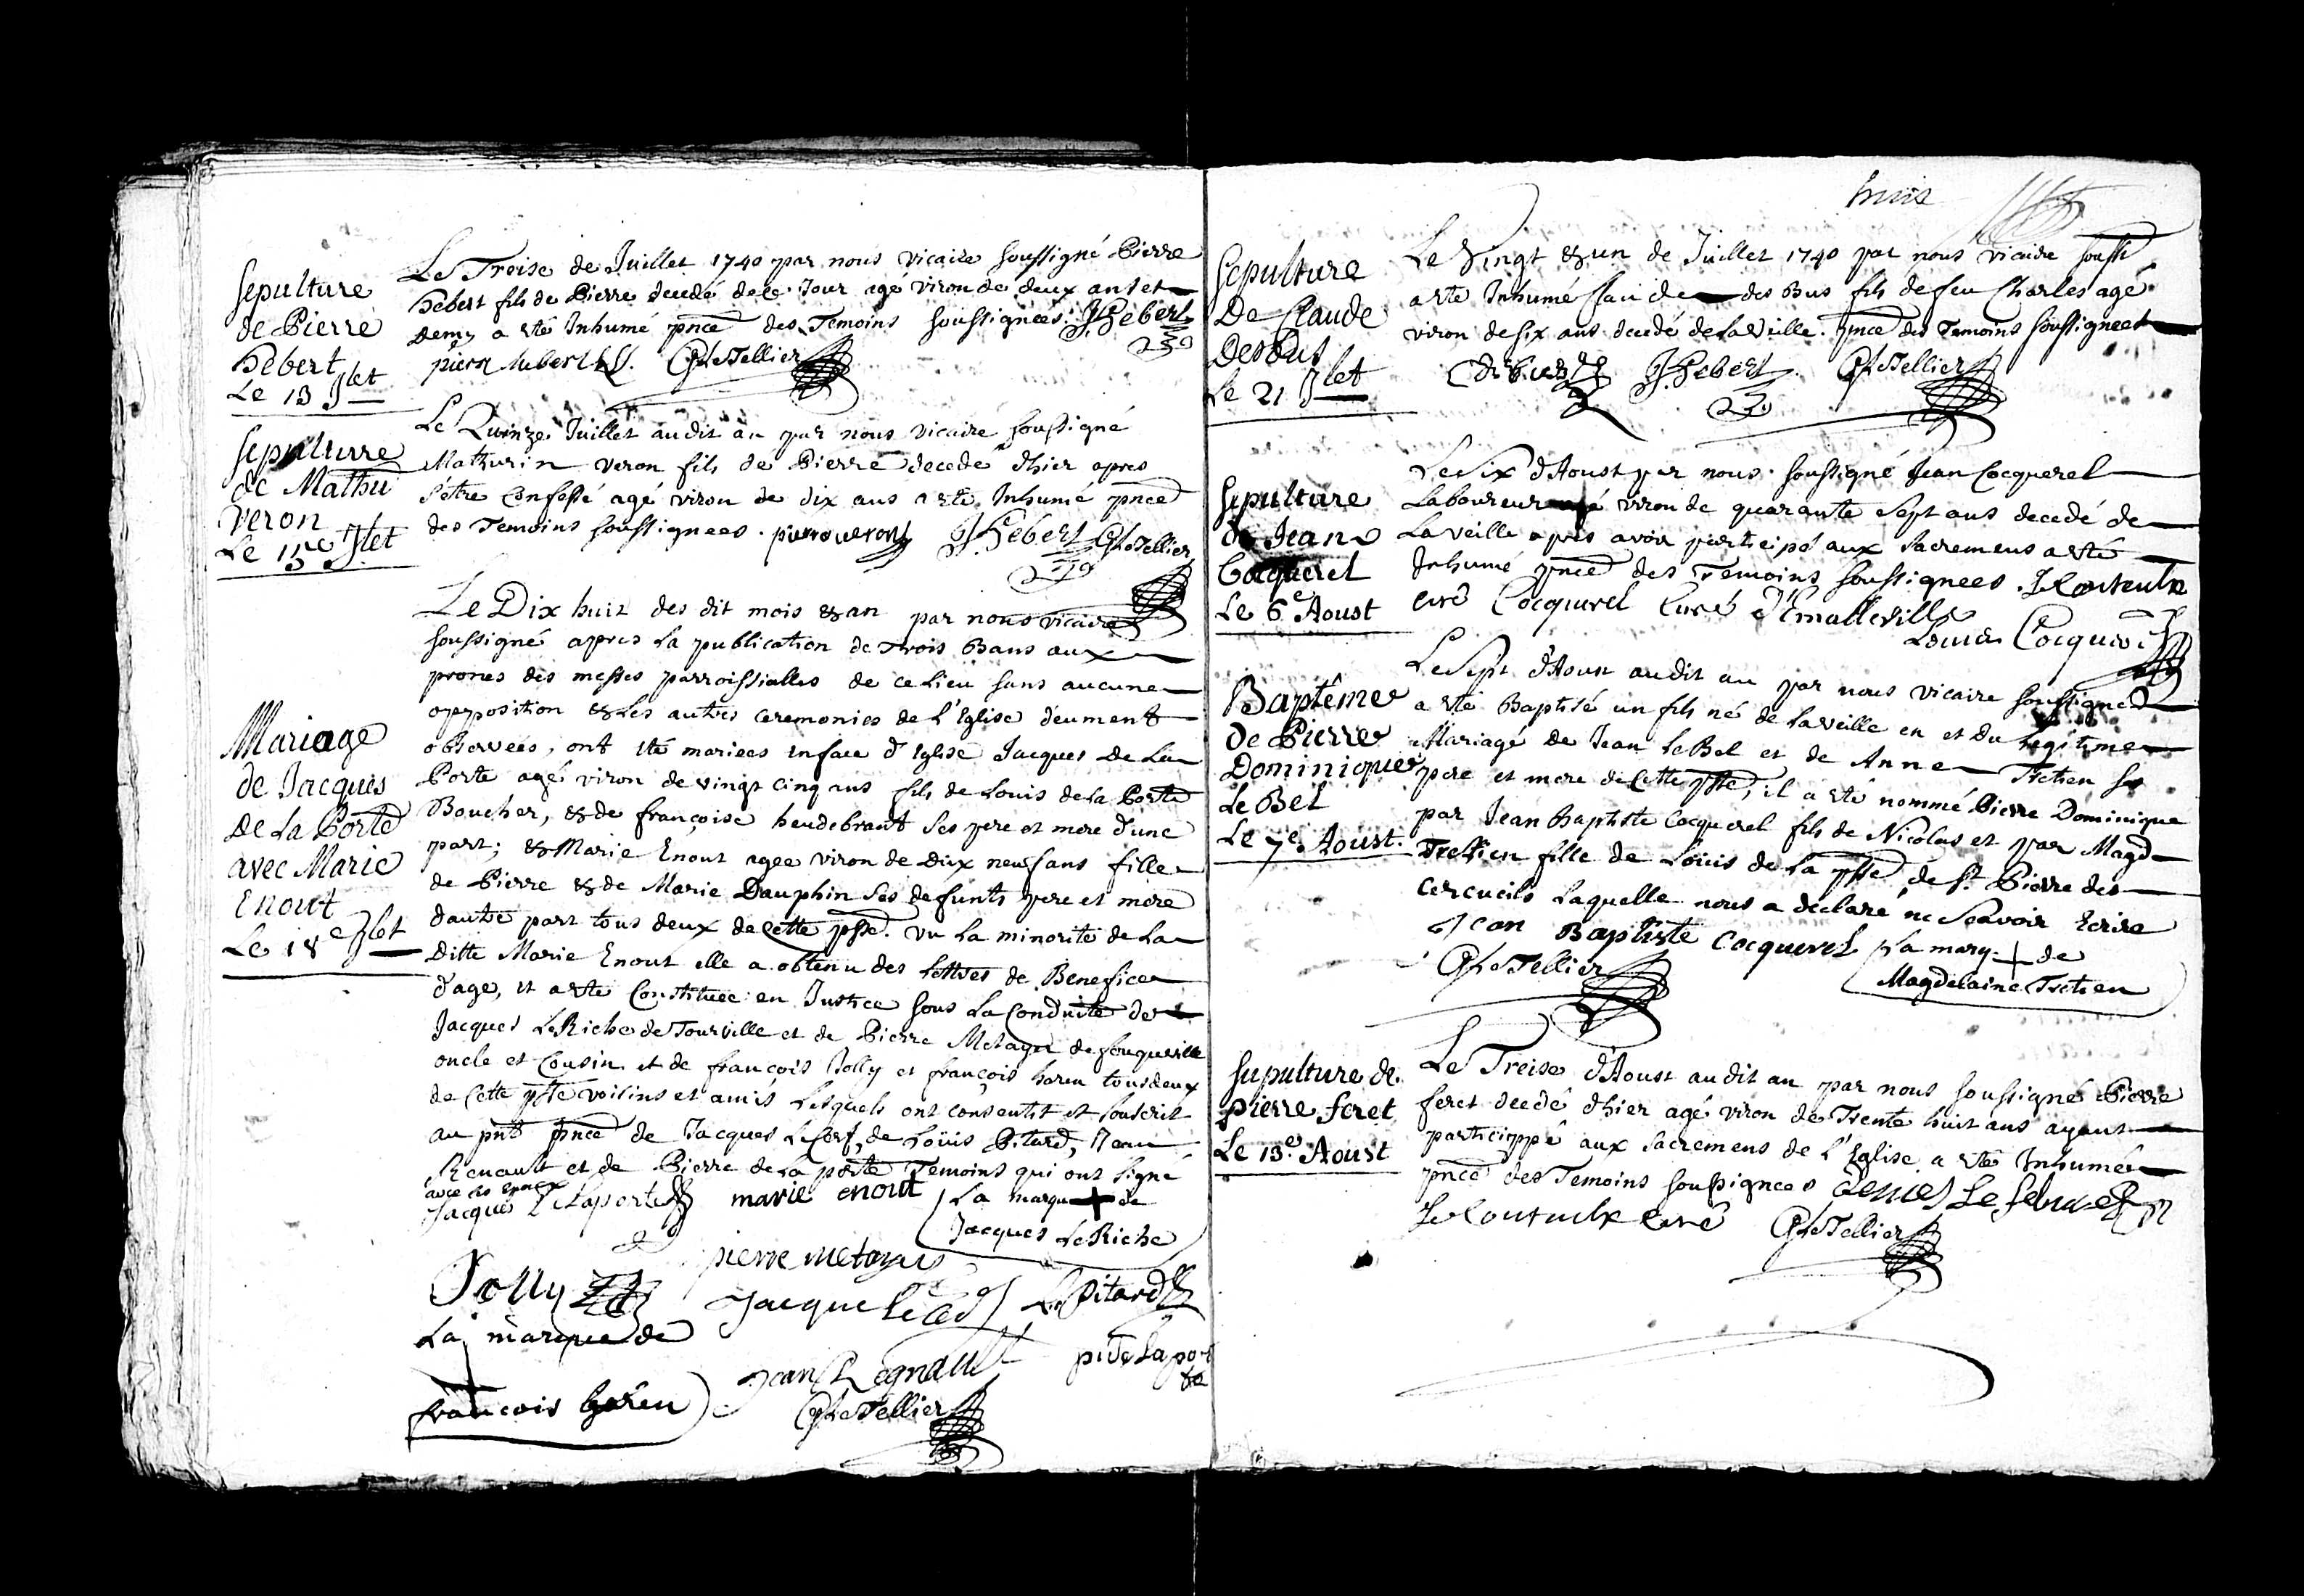 Sepulture
de Pierre
hebert
Le 13 Jlet
Le Treise de Juillet 1740 par nous vicaire soussigné Pierre
hebert fils de Pierre decedé de ce jour agé viron de deux ans et
demy a eté Inhumé pnce des Temoins soussignees. J Hebert
pierre hebert G Le Tellier
Sepulturre
de Mathu
veron
Le 15e Jlet
Le Quinze Juillet audit an par nous vicaire soussigné
Mathurin veron fils de Pierre decedé d'hier apres
s'étre Confessé agé viron de dix ans a eté Inhumé pnce
des Temoins soussignees. pierre veron J Hebert G Le Tellier
Mariage
de Jacques
de La Porte
avec Marie
Enout
Le 18e Jlet
Le Dix huit des dit mois & an par nous vicaire
soussigné apres la publication de Trois Bans aux
prones des messes parroissialles de ce Lieu sans aucune
opposition & Les autres ceremonies de L'Eglise deument
observees, ont eté mariees en face d'Eglise Jacques de La
Porte agé viron de vingt cinq ans fils de Louis de la Porte
Boucher, & de françoise heudebrant ses pere et mere d'une
part; & Marie Enout agee viron de Dix neuf ans fille
de Pierre & de Marie Dauphin ses defunts pere et mere
dautre part tous deux de cette psse. vu La minorité de La
ditte Marie Enout elle a obtenu des Lettres de Benefice
d'age, et a eté Constituee en Justice sous La Conduite de
Jacques Le Riche de Tourville et de Pierre Metayer de fouqueville
oncle et Cousin et de françois Jolly et françois haren tous deux
de Cette psse voisins et amis Lesquels ont consentit et souscrit
au pnt pnce de Jacques Le Cerf, de Loüis Pitard, Jean
Renault et de Pierre de La porte Temoins qui ont signé
avec les epoux
Jacques De Laporte marie enout La marque + de
Jacques Le Riche
pierre metayer
Jolly Jacque le Cerf L Pitard
La marque de
françois haren
Jean Regnault p de la por
te
G Le Tellier
huit
Sepulture
De Claude
des Bus
Le 21 Jlet
Le Vingt & un de Juillet 1740 par nous vicaire souss
a eté Inhumé Claude des Bus fils de feu Charles agé
viron de six ans decedé de La veille. pnce des Temoins soussignees
J Hebert G Le Tellier
Sepulture
de Jean
Cocquerel
Le 6e Aoust
Le Six d'Aoust par nous soussigné Jean Cocquerel
Laboureur agé viron de quarante sept ans decedé de
La veille apres avoir participé aux Sacremens a eté
Inhumé pnce des Temoins soussignees. Le Couteulx
curé Cocquerel Curé d'Emalleville
Louis Cocquerel
Baptême
de Pierre
Dominique
Le Bel
Le 7e Aoust.
Le Sept d'Aoust audit an par nous vicaire soussigné
a eté Baptisé un fils né de La veille en et du Legitime
Mariage de Jean Le Bel et de Anne Tretien ses
pere et mere de Cette psse, il a eté nommé Pierre Dominique
par Jean Baptiste Cocquerel fils de Nicolas et par Magd
Tretien fille de Loüis de La psse de St Pierre des
Cercueils Laquelle nous a declaré ne Scavoir Ecrire
Jean Baptiste Cocquerel La marq + de
Magdelaine Tretien
G Le Tellier
Sepulture de
pierre feret
Le 13e Aoust
Le Treise d'Aoust audit an par nous soussigné Pierre
feret decedé d'hier agé viron de Trente huit ans ayant
particippé aux Sacremens de L'Eglise a eté Inhumé
pnce des Temoins soussignees Le febure
Le Couteulx curé G Le Tellier